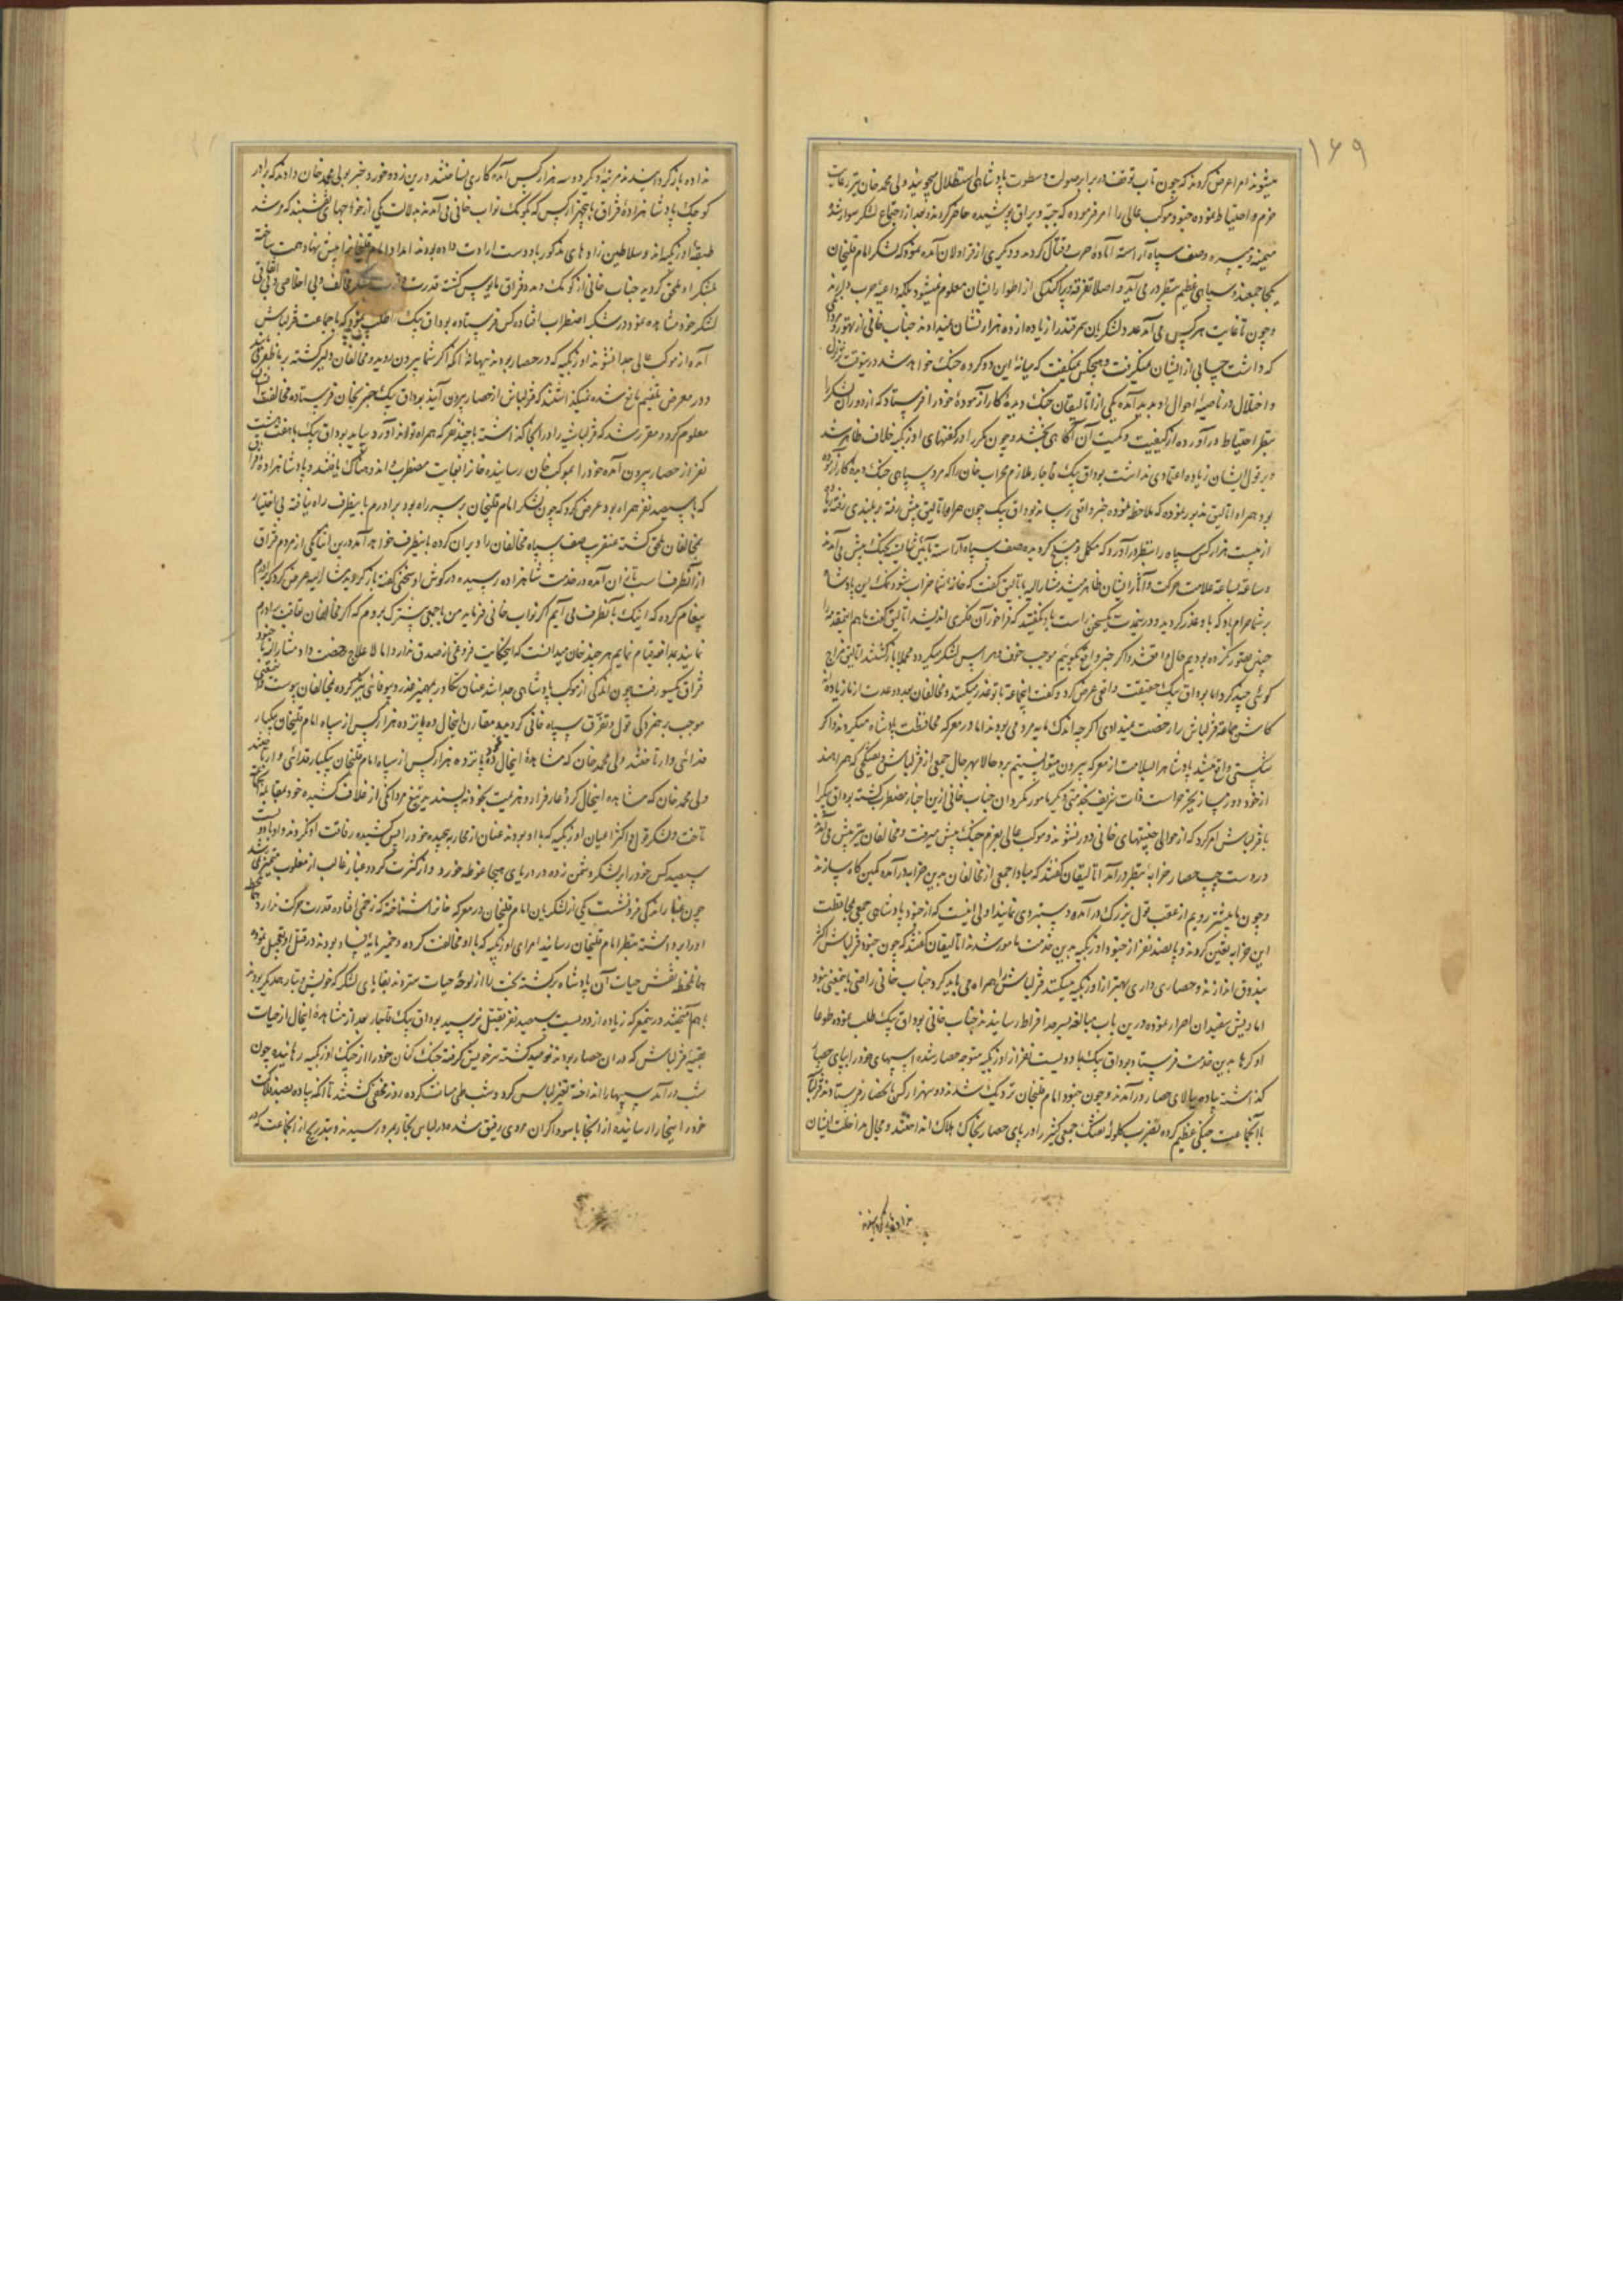 ۱۶۹
میشوند امرا عرض کردند که چون تاب توقف در برابر صولت و سطوت پادشاهی استظلال میجویند ولی محمد خان بنا بر رعایت
حزم و احتیاط نموده جنود موکب عالی را امر فرموده که جبه و یراق پوشیده حاضر کردند و بعد از اجتماع لشکر سوار شد
میمنه و میسره و صف سپاه آراسته آماده حرب و قتال کردند و دیگری از قراولان آمده نمود که لشکر امام قلیخان
یکجا جمعند و سپاهی عظیم بنظر در می آید و اصلا تفرقه و پراکندگی از اطوار ایشان معلوم نمیشود بلکه داعیه حرب دارند
و چون تا غایت هر کس می آمد عدد لشکریان سمرقند را زیاده از ده هزار نشان نمیدادند جناب خانی از تهور
که داشت حسابی از ایشان نمیگرفت و هیچکس نمیگفت که میانه این دو گروه جنگ خواهد شد درینوقت
و اختلال در ناصیه احوال او پدید آمده یکی از اتالیقان جنگ دیده کار آزموده خود را فرستاد که از دور آن لشکر را
بنظر احتیاط درآورده از کیفیت و کمیت آن آگاهی بخشد و چون مکرر از گفتهای اوزبکیه خلاف ظاهر شد
و بر قول ایشان زیاده اعتمادی نداشت بوداق بیک قاجار ملازم محراب خان را که مرد سپاهی جنگ دیده کار آزموده
بود همراه اتالیق مزبور نموده که ملاحظه نموده خبر واقعی رساند بوداق بیک چون همراه اتالیق پیش رفته بر بلندی رفته
از بیست هزار کس سپاه را بنظر درآورد که مکمل و مسلح گردیده صف سپاه آراسته بآئین شایسته بجنگ پیش می آمدند
و ساعة بساعة علامت حرکت و آثار ایشان ظاهر میشد مشار الیه باتالیق گفت که خانه شما خراب شود نمک این پادشاه
بر شما حرام باد که با او غدر کردید و در خدمت یکسخن راست باو نگفتید که فراخور آن فکری اندیشد اتالیق گفت ما هم اینقدر
چنین تصور نکرده بودیم حال واقع شد و اگر خبر واقع بگوئیم موجب خوف و هراس لشکر میگردد مجملا بازگشتند اتالیق مزاج
گوئی چند کرد اما بوداق بیک حقیقت واقعی عرض کرد و گفت اینجماعة با تو غدر میکنند و مخالفان بعدد و عدت از ما زیاده اند
کاش جماعة قزلباش را رخصت نمیدادی اگر چه اندک مایه مردمی بودند اما در معرکه محافظت پادشاه میکردند و اگر
شکستی واقع میشد پادشاه را بسلامت از معرکه بیرون میتوانستیم برد حالا بهر حال جمعی از قزلباش و تفنگچی که همراهند
از خود دور مساز که خواست ذات شریف بخدمتی دیگر مامور نگردان جناب خانی ازین اخبار مضطرب گشته بوداق بیک را
با قزلباش امر کرد که از حوالی جنیبتهای خانی دور نشوند و موکب عالی بعزم جنگ پیش میرفت و مخالفان نیز پیش می آمدند
در دست چپ حصار خرابه بنظر درآمد اتالیقان گفتند که مبادا جمعی از مخالفان بدین خرابه درآمده کمین گاه سازند
و چون ما پیشتر رویم از عقب قول بزرگ درآمده دستبردی نمایند اولی انیست که از جنود پادشاهی جمعی محافظت
این خرابه تعیین کردند و پانصد نفر از جنود اوزبکیه بدین خدمت مامور شدند اتالیقان گفتند که چون جنود قزلباش اکثر
بندوق اندازند و حصار داری بهتر از اوزبکیه میکنند قزلباش را همراه می باید کرد جناب خانی راضی باینمعنی نبود
اما ریش سفیدان اصرار نموده درین باب مبالغه بسرحد افراط رسانیدند جناب خانی بوداق بیک طلب نموده طوعا
او کرها بدین خدمت فرستاد بوداق بیک با دویست نفر از اوزبکیه متوجه حصار شده اسپهای خود را بپای حصار
گذاشته پیاده ببالای حصار درآمدند و چون جنود امام قلیخان نزدیک شدند دو سه هزار کس بحصار فرستادند قزلباش
با آنجماعت جنگی عظیم کرده بضرب گلوله تفنگ جمعی کثیر را در پای حصار بخاک هلاک انداختند و مجال مداخلت ایشان
نداده بازگردانیدند
نداده بازگردانیدند مرتبه دیگر دو سه هزار کس آمده کاری نساختند درین زد و خورد خبر بولی محمد خان دادند که برادر
کوچک پادشاهزاده قزاق با پنجهزار کس که بکومک نواب خانی می آمدند بدلالت یکی از خواجهای نقشبند که مرشد
طبقه اوزبکیه اند و سلاطین زادهای مذکور باو دست ارادت داده بودند امداد امام قلیخان پیش نهاد همت ساخته
بلشکر او ملحق گردید جناب خانی از کومک و مدد قزاق مایوس گشته قدرت و از لشکر مخالف و بی اخلاصی و بی اتفاقی
لشکر خود مشاهده نموده در شکه اضطراب افتاده کس فرستاده بوداق بیک را طلب نمود که با جماعت قزلباش
آمده از موکب عالی جدا نشوند اوزبکیه که در حصار بودند بهانه آنکه اگر شما بیرون روید و مخالفان دلیر گشته بر ما ظفر می یابند
و در معرض تفهیم مانع شده نمیگذاشتند که قزلباش از حصار بیرون آیند بوداق بیک خبر بخان فرستاده مخالفت ایشان
معلوم کرد و مقرر شد که قزلباشیه را در آنجا گذاشته با چند نفر که همراه تواند آورد بیاید بوداق بیک با هفت هشت
نفر از حصار بیرون آمده خود را بموکب خان رسانیده خانرا بغایت مضطرب و اندوهناک یافتند و پادشاهزاده قزاق
که با سیصد نفر همراه بود عرض کرد که چون لشکر امام قلیخان بر سر راه بود برادرم باینطرف راه نیافته بی اختیار
بمخالفان ملحق گشته عنقریب صف سپاه مخالفان را ویران کرده باینطرف خواهد آمد درین اثنا یکی از مردم قزاق
از آنطرف اسب تازان آمده در خدمت شاهزاده رسیده در گوش او سخنی گفته بازگردید مشار الیه عرض کرد که برادرم
پیغام کرده که اینک بآنطرف می آیم اگر نواب خانی فرماید من با جمعی پیشترک بروم که اگر مخالفان تعاقب برادرم
نمایند بمدافعه قیام نمایم هر چند خان میدانست که اینحکایت فروغی از صدق ندارد اما لا علاج رخصت داد مشار الیه با جنود
قزاق یکسو رفت چون اندکی از موکب پادشاهی جدا شد عنان تکاور بمهمیز غدر و بیوفائی تیز کرده بمخالفان پیوست و اینمعنی
موجب برهم خوردگی قول و تفرق سپاه خانی گردید مقارن اینحال ده پانزده هزار کس از سپاه امام قلیخان بیکبار
فدائی وار تاختند ولی محمد خان که مشاهده اینحال کرده پانزده هزار کس از سپاه امام قلیخان بیکبار فدائی وار تاختند
ولی محمد خان که مشاهده اینحال کرد عار فرار و هزیمت بخود نپسندید تیغ مردانگی از غلاف کشیده خود بمقابله آنجماعت
تاخت و لشکر قول و اکثر اعیان اوزبکیه که با او بودند عنان از محاربه پیچیده خود را پس کشیده رفاقت او نکردند و او با دویست
سیصد کس خود را بر لشکر دشمن زده در دریای هیجا غوطه خورد و از کثرت گرد و غبار غالب از مغلوب متمیز نمی شد
چون غبار اندکی فرو نشست یکی از لشکریان امام قلیخان در معرکه خانرا شناخته که زخمی افتاده قدرت حرکت ندارد همان لحظه
او را برداشته بنظر امام قلیخان رسانید امرای اوزبکیه که با او مخالفت کرده و خمیر مایه فساد بودند در قتل او تعجیل نموده
همانلحظه نقش حیات آن پادشاه برگشته بخت را از لوحه حیات ستردند بقایای لشکر که خویش و تبار همدیگر بودند
بهم آمیختند در همه معرکه زیاده از دویست سیصد نفر بقتل نرسید بوداق بیک قاجار بعد از مشاهده اینحال از حیات
بقیه قزلباش که در آن حصار بودند نومید گشته سر خویش گرفته جنگ کنان خود را از چنگ اوزبکیه رهانیده چون
شب درآمد اسپها را انداخته تغییر لباس کرد و شب طی مسافت کرده روز مخفی گشتند تا آنکه پیاده بصد فلاکت
خود را بنجار رسانیده از آنجا با سوداگران مروی رفیق شده در لباس تجار بمرو رسیدند و بتدریج از آنجماعت که در